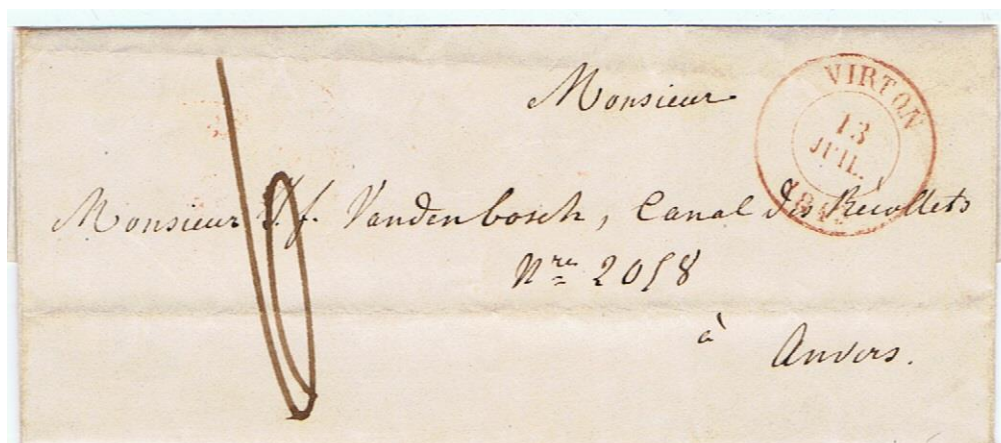 Monsieur
VIRTON
13
JUIL.
Monsieur J. f. Vandenbosch, Canal des Récollets
Nre 2058
à
Anvers.